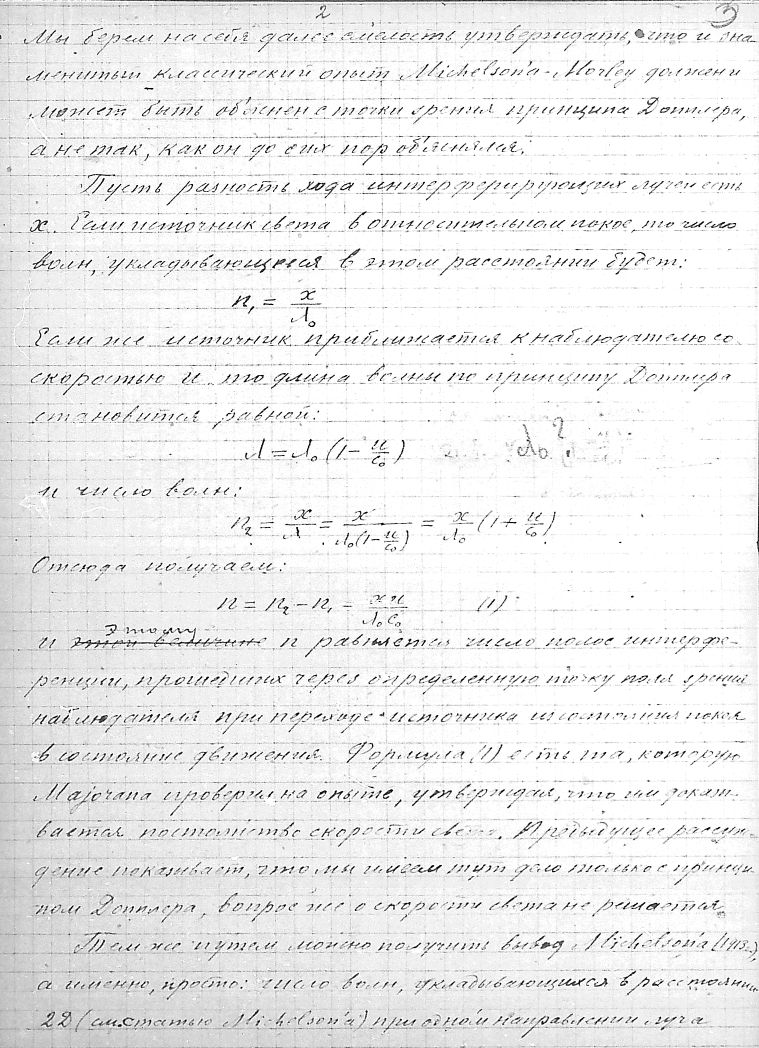 2
3
Мы берем на себя далее смелость утверждать, что и зна-
менитый классический опыт Michelson'a-Morley должен и
может быть об'яснен с точки зрения принципа Допплера,
а не так, как он до сих пор об'яснялся.
Пусть разность хода интерферирующих лучей есть
x. Если источник света в относительном покое, то число
волн, укладывающееся в этом расстоянии будет:
n₁ = x/λ₀
Если же источник приближается к наблюдателю со
скоростью u то длина волны по принципу Допплера
становится равной:
λ = λ₀ (1 - u/c₀) λ₀?
и число волн:
n₂ = x/λ = x/λ₀(1-u/c₀) = x/λ₀ (1 + u/c₀)
Отсюда получаем:
n = n₂ - n₁ = xu/λ₀c₀ (1)
этому
и этой величине n равняется число полос интерфе-
ренции, прошедших через определенную точку поля зрения
наблюдателя при переходе источника из состояния покоя
в состояние движения. Формула (1) есть та, которую
Majorana проверил на опыте, утверждая, что им доказы-
вается постоянство скорости света. Предыдущее рассуж-
дение показывает, что мы имеем тут дело только с принци-
пом Допплера, вопрос же о скорости света не решается.
Тем же путем можно получить вывод Michelson'a (1913г.),
а именно, просто: число волн, укладывающихся в расстоянии
2D (см. статью Michelson'a) при одном направлении луча